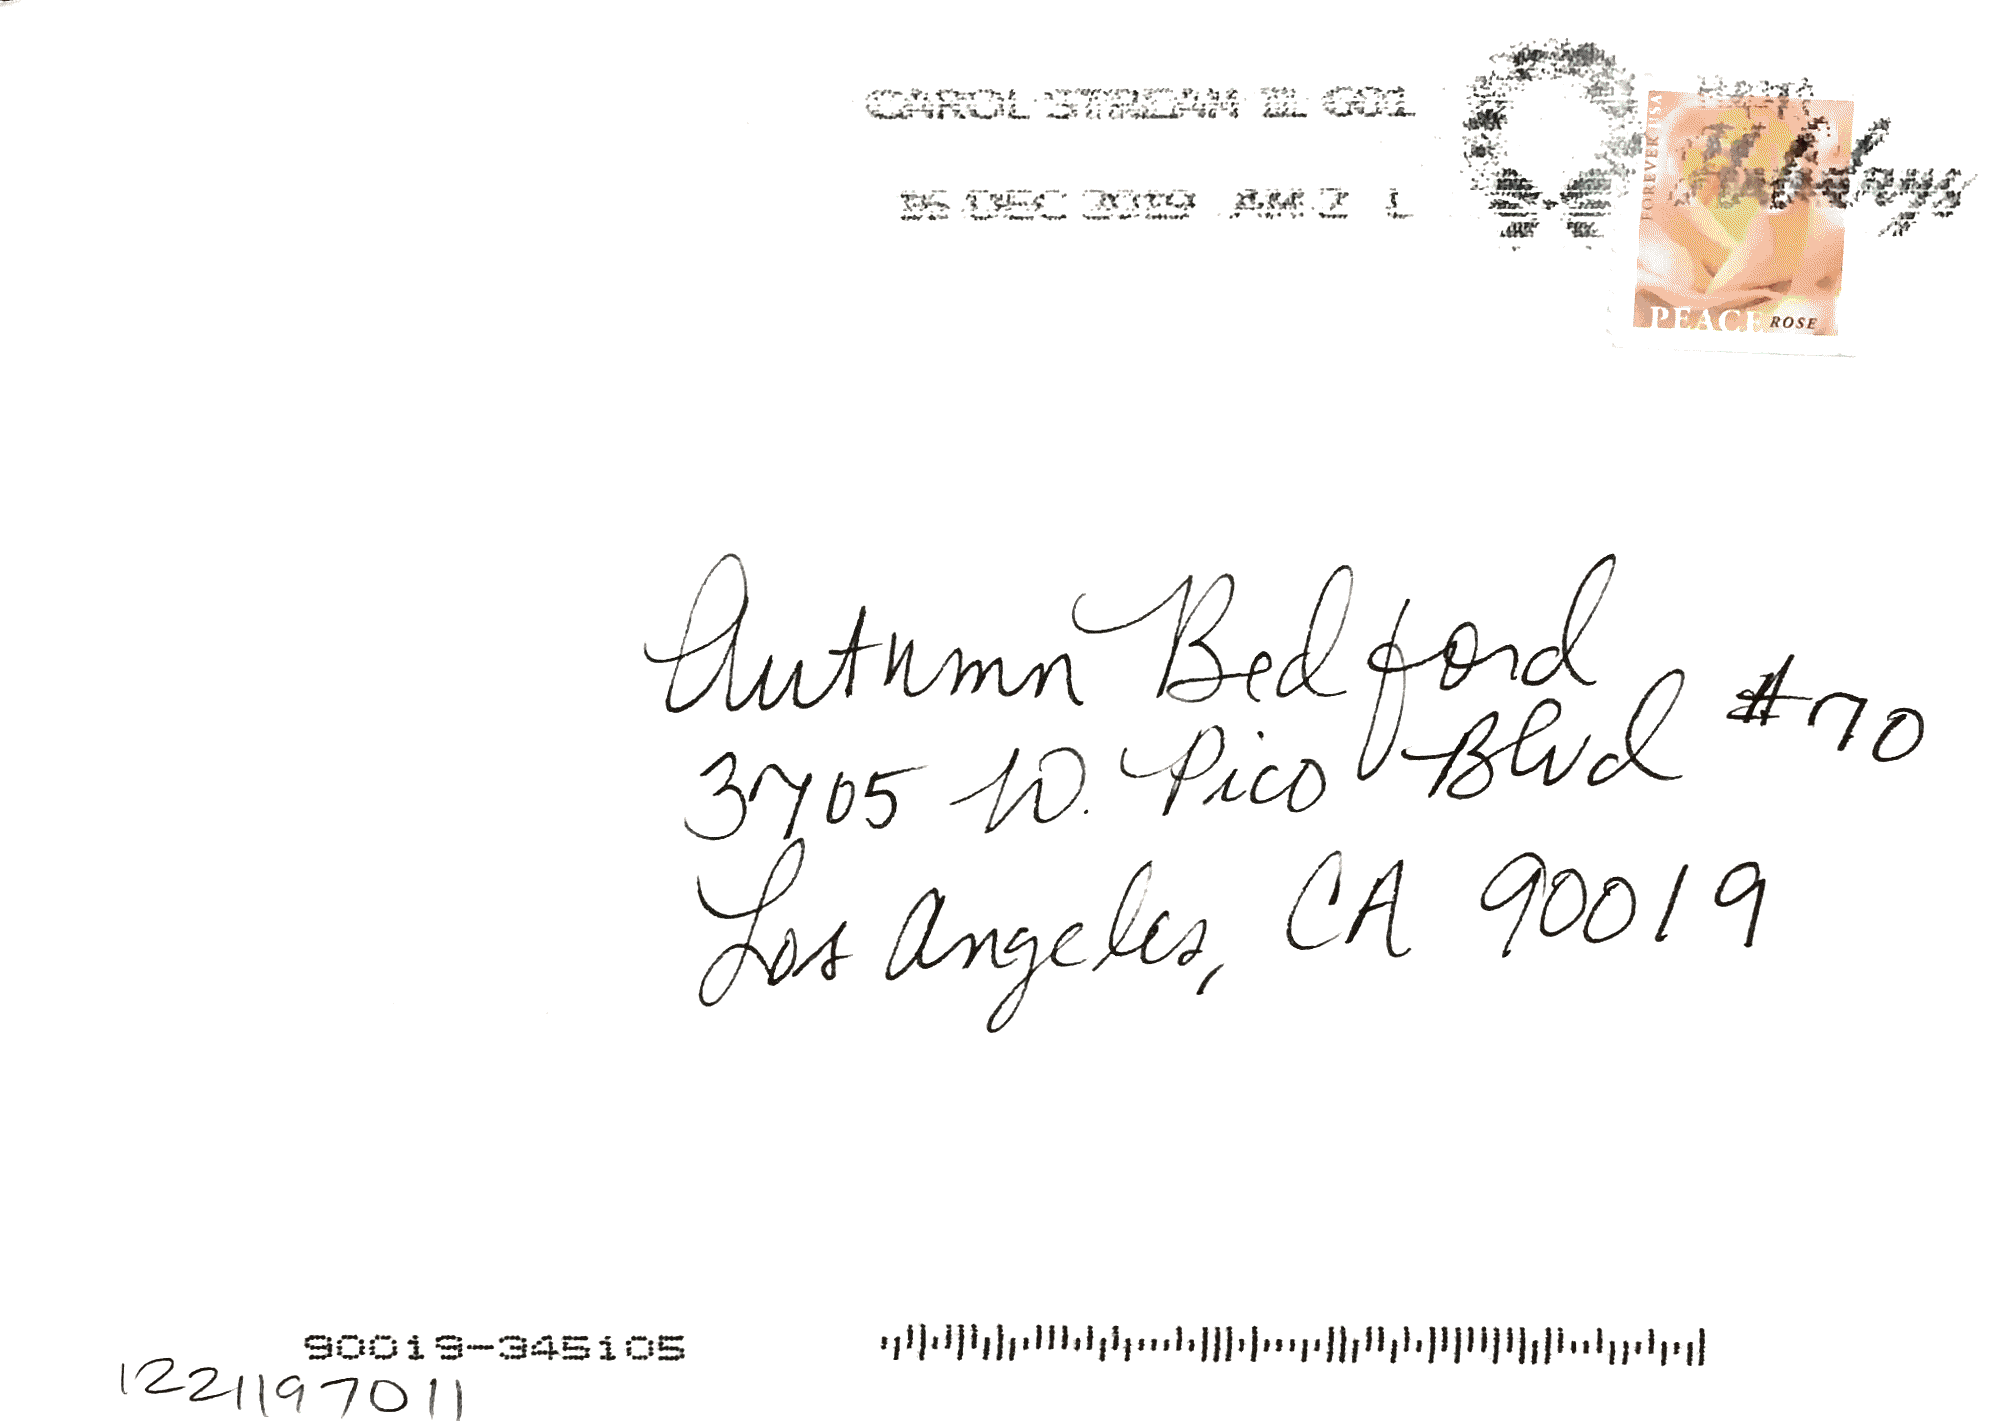 CAROL STREAM IL 601
16 DEC 2019 AM 2 L
Happy
Holidays
FOREVER USA
PEACE ROSE
Autumn Bedford
3705 W. Pico Blvd #70
Los Angeles, CA 90019
90019-345105
1221197011